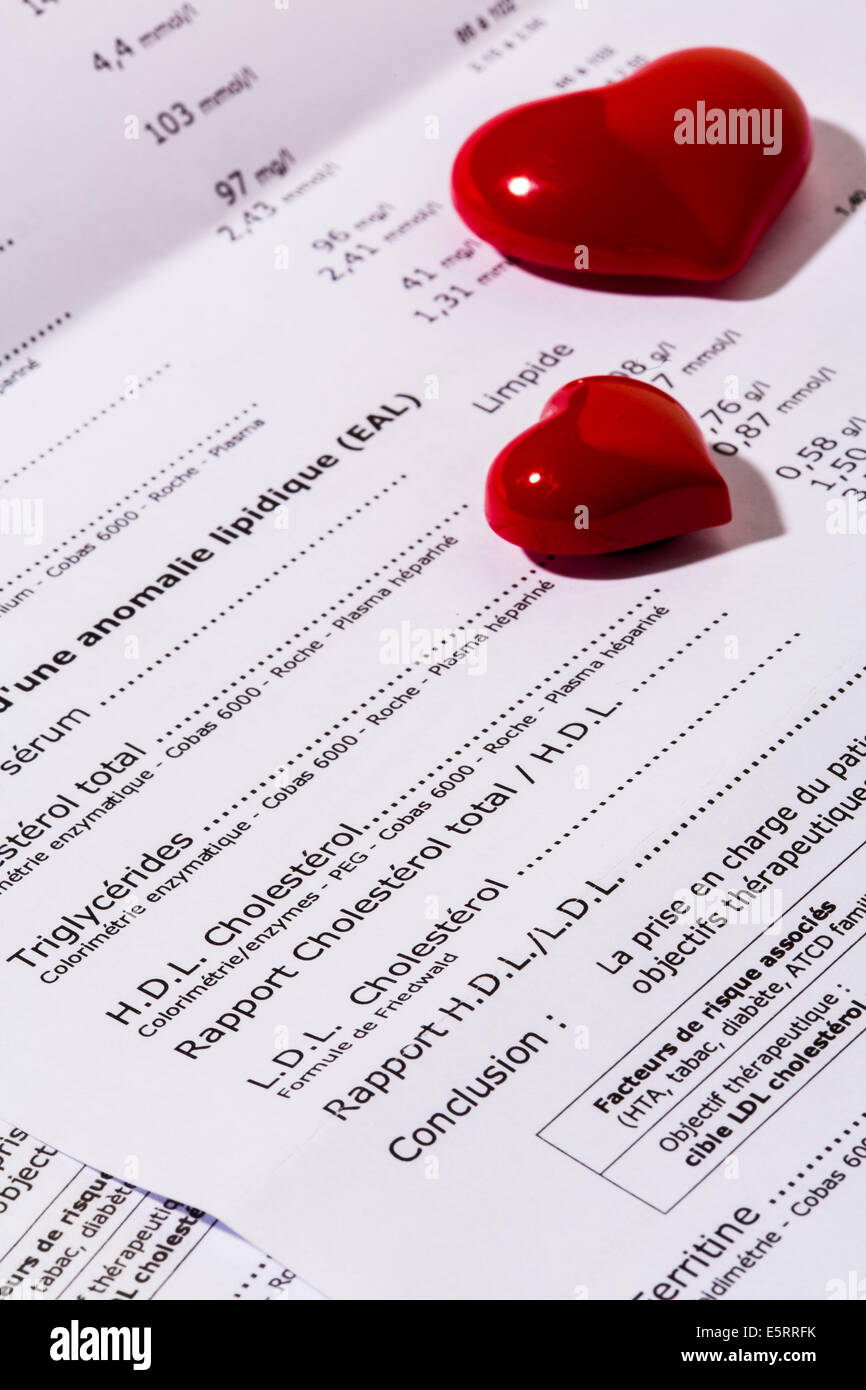 4,4 mmol/l
103 mmol/l
97 mg/l
2,43
96 mg/l
2,41 mmol/l
41 mg/l
1,31 mmol/
d'une anomalie lipidique (EAL)
sérum
Limpide
g/l
mmol/l
,76 g/l
0,87 mmol/l
0,58 g/
1,50
Cobas 6000 - Roche - Plasma
Colorimétrie enzymatique - Cobas 6000 - Roche - Plasma hépariné
total
Triglycérides
Colorimétrie enzymatique - Cobas 6000 - Roche - Plasma hépariné
H.D.L. Cholestérol
Colorimétrie/enzymes - PEG - Cobas 6000 - Roche - Plasma hépariné
Rapport Cholestérol total / H.D.L.
L.D.L. Cholestérol
Formule de Friedwald
Rapport H.D.L./L.D.L.
Conclusion :
La prise en charge du
objectifs thérapeutique
Facteurs de risque associés
(HTA, tabac, diabète, ATCD
Objectif thérapeutique :
cible LDL cholestérol
Ferritine
Cobas
de risque
tabac, diabète
thérapeutique
LDL
alamy
Image ID: E5RRFK
www.alamy.com